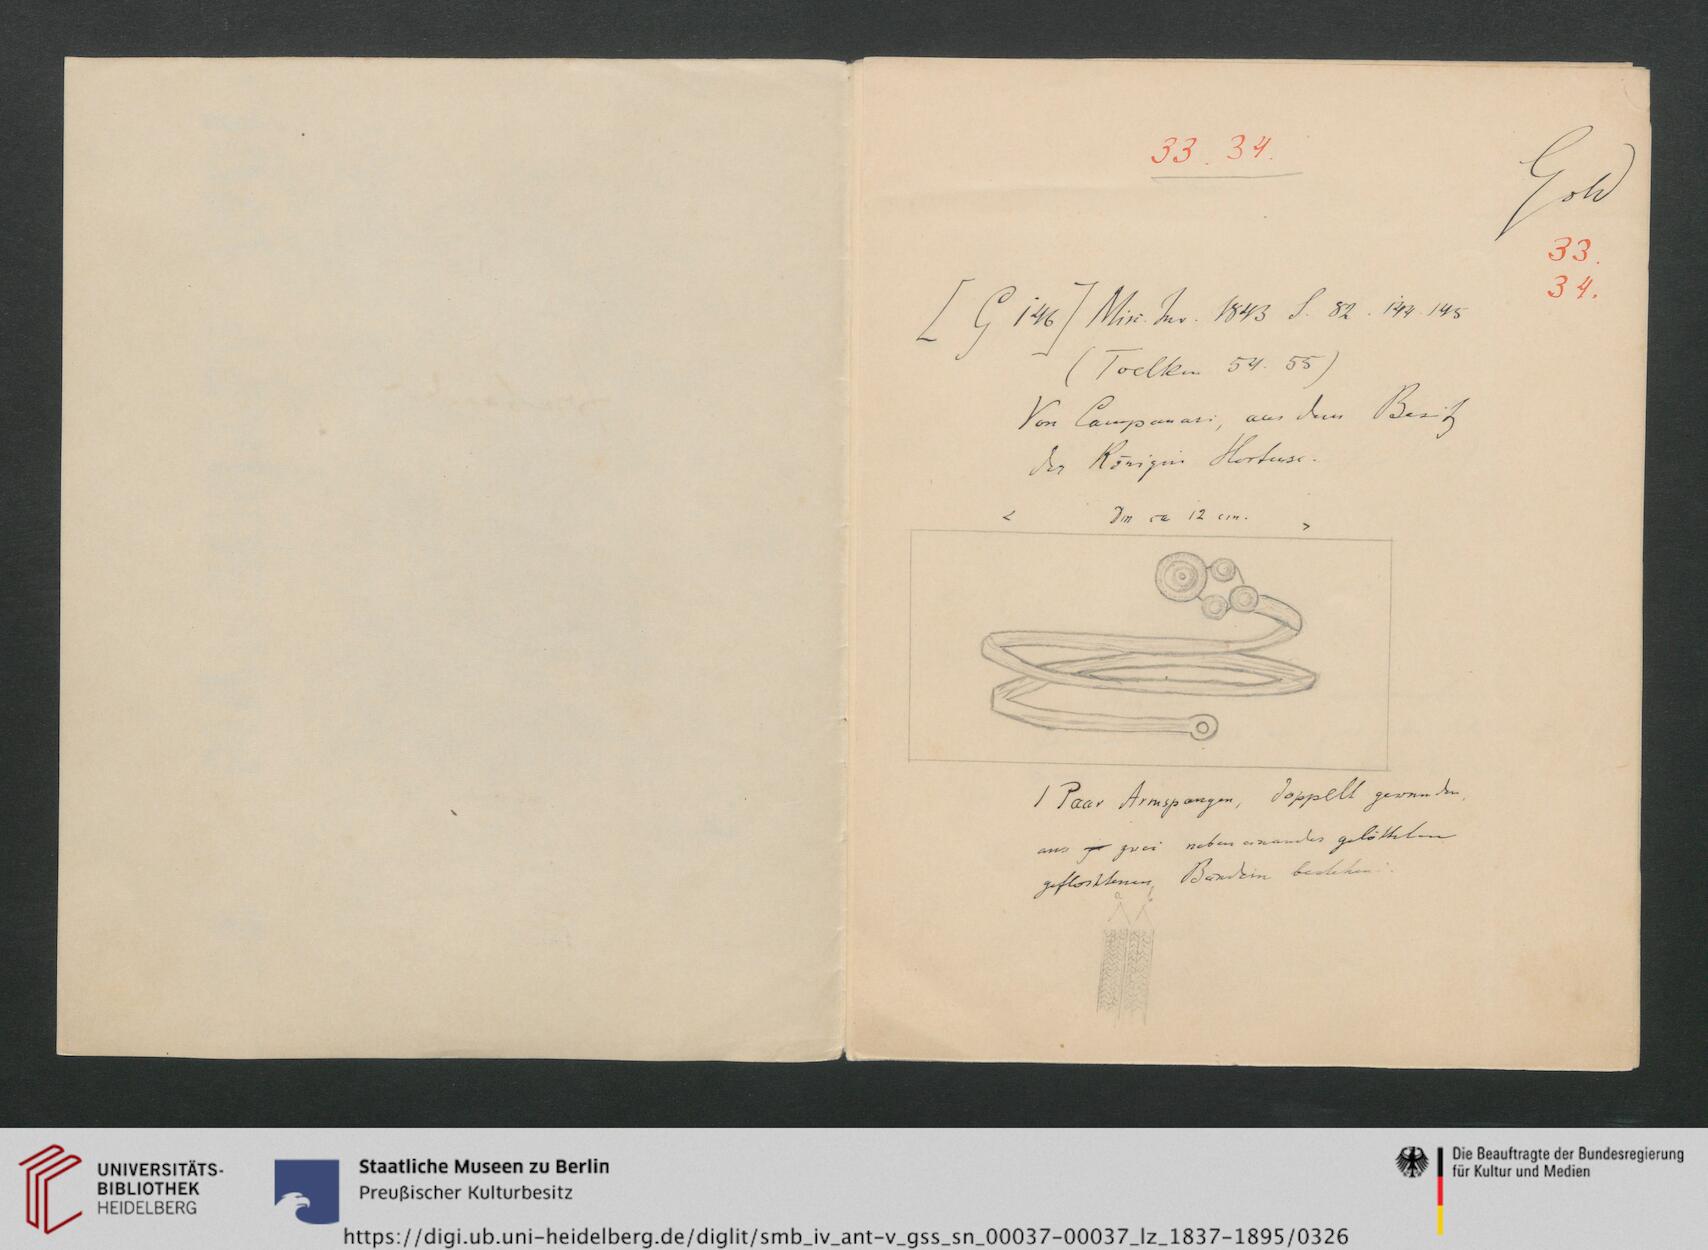 33. 34.
Gold
33.
34.
[G 146] Misc. Inv. 1843 S. 82. 144. 145
(Toelken 54. 55)
Von Campanari, aus dem Besitz
der Königin Hortense.
< Dm ca 12 cm. >
1 Paar Armspangen, doppelt gewunden,
aus zwei nebeneinander gelötheten
geflochtenen Bändern bestehend.
a b
UNIVERSITÄTS-
BIBLIOTHEK
HEIDELBERG
Staatliche Museen zu Berlin
Preußischer Kulturbesitz
Die Beauftragte der Bundesregierung
für Kultur und Medien
https://digi.ub.uni-heidelberg.de/diglit/smb_iv_ant-v_gss_sn_00037-00037_lz_1837-1895/0326